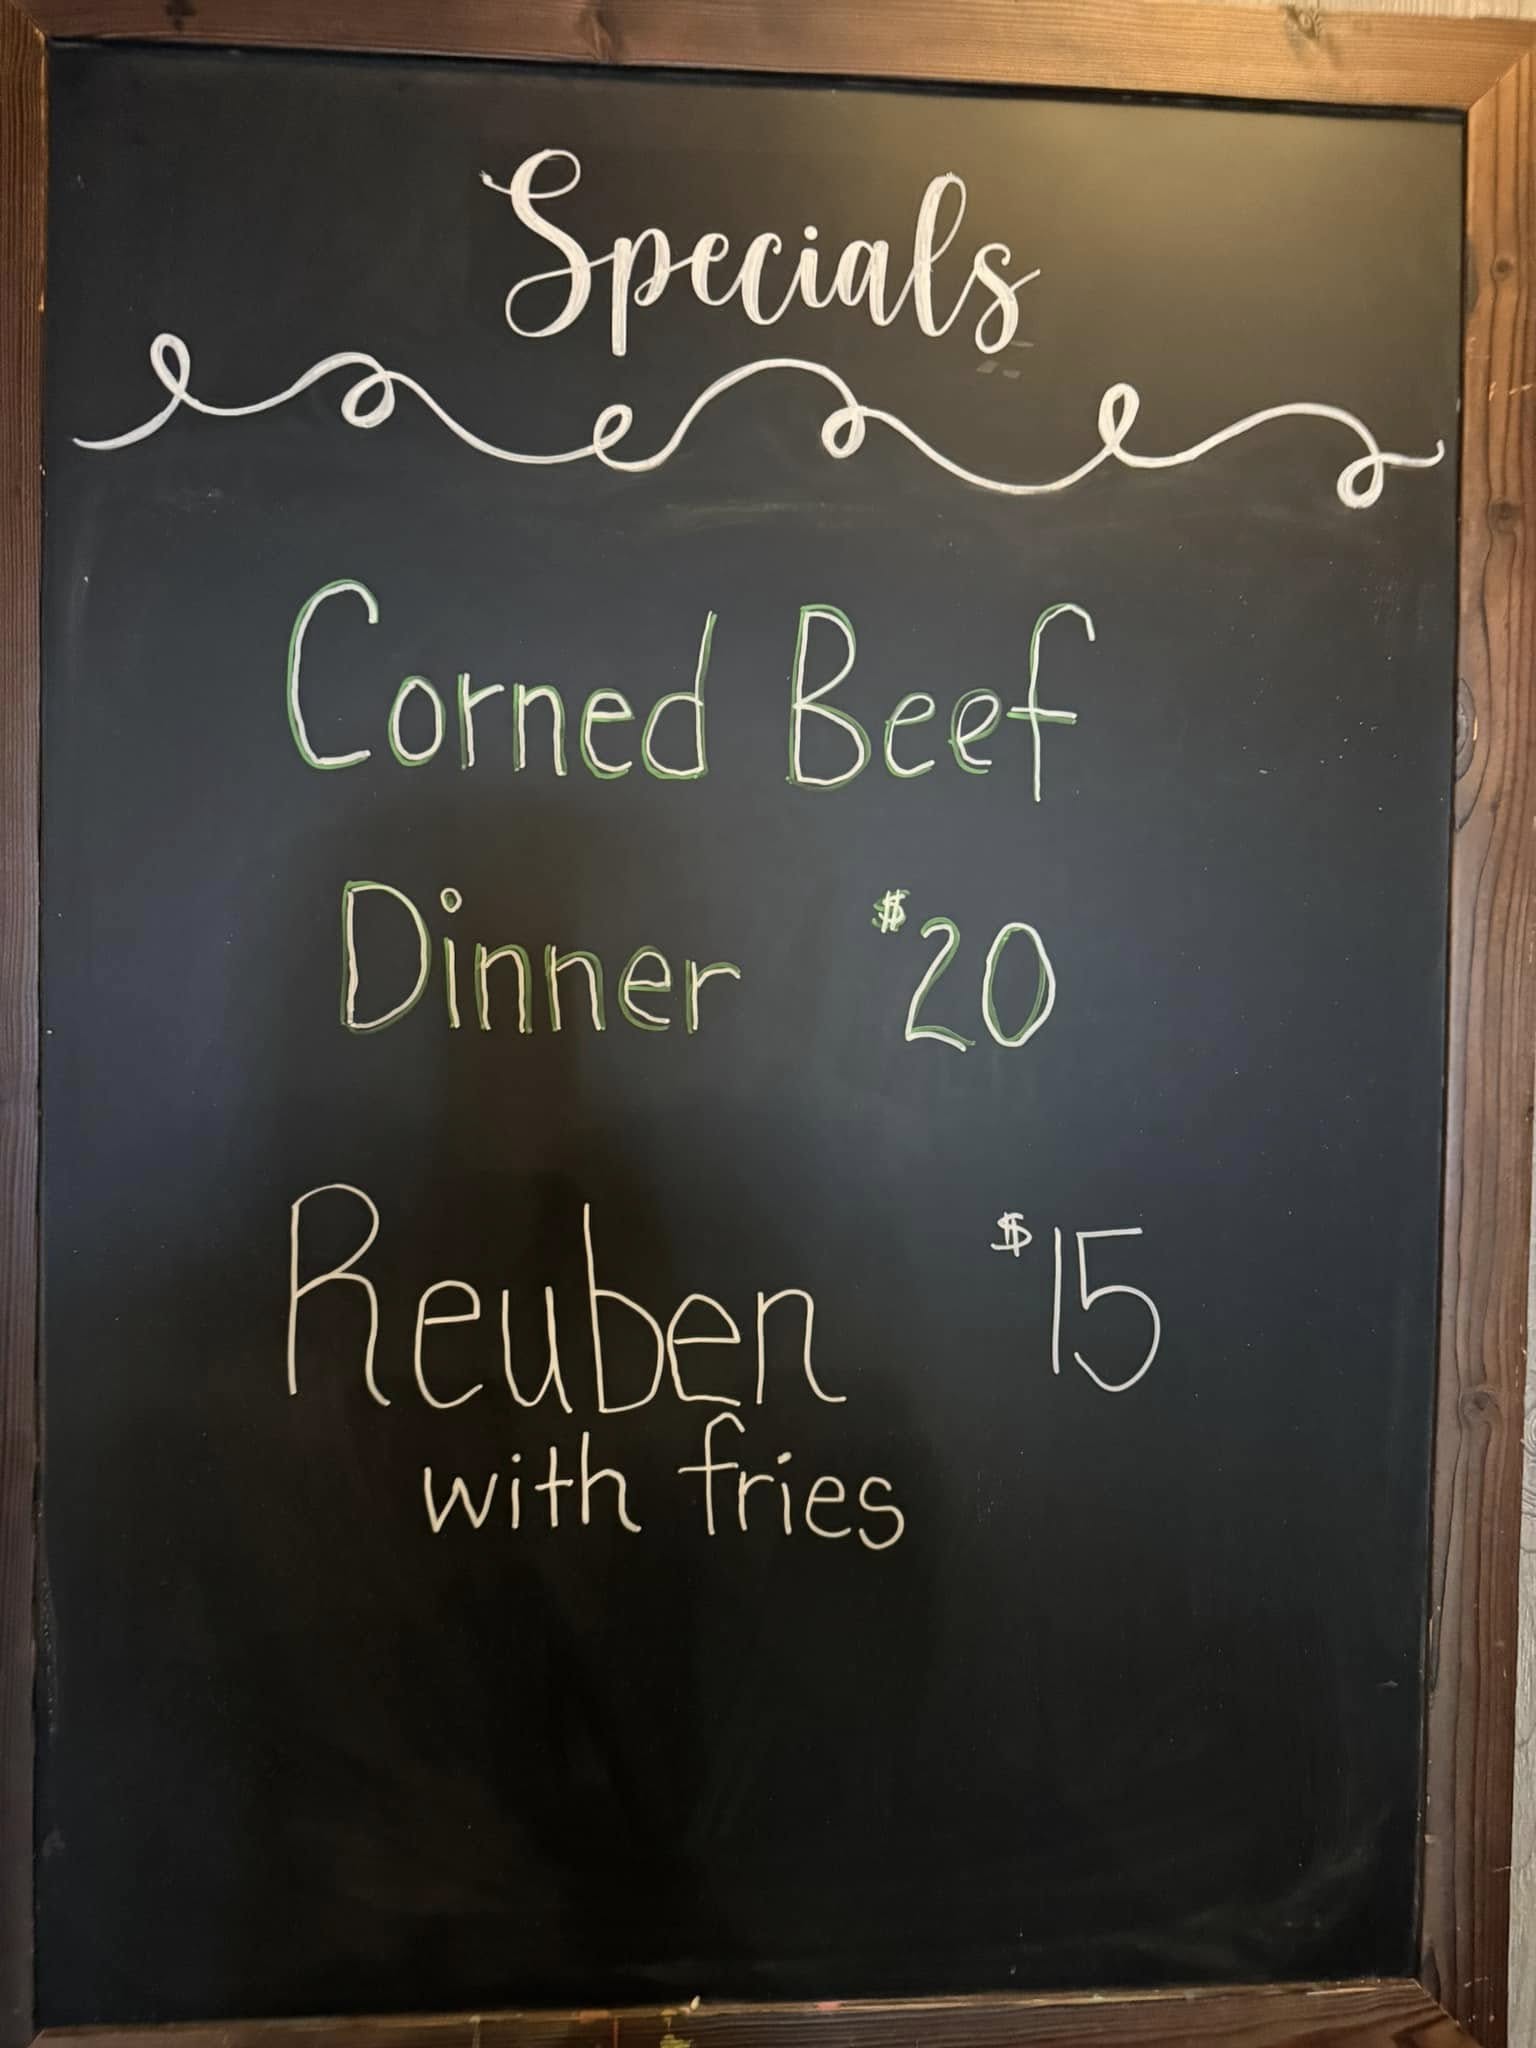 Specials
Corned Beef
Dinner $20
Reuben $15
with fries